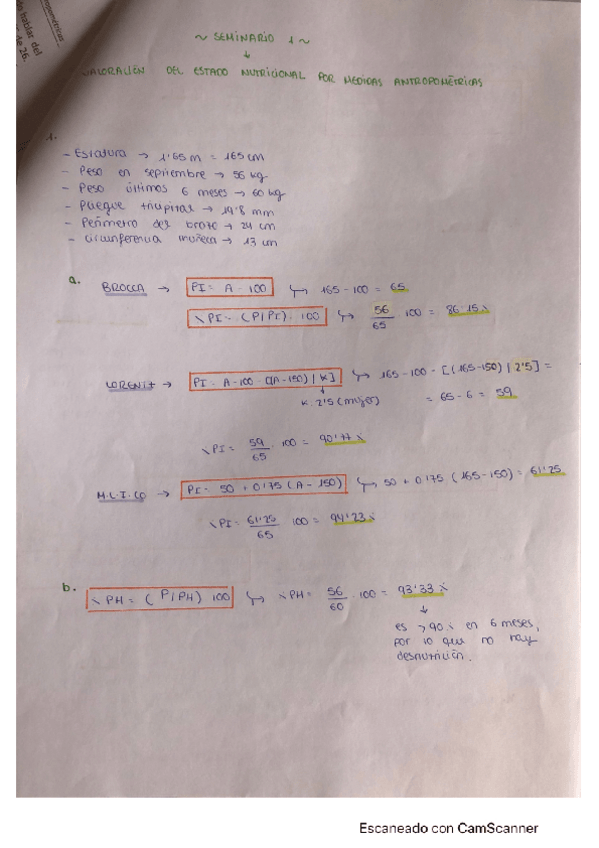 ~ SEMINARIO 1 ~
↓
VALORACIÓN DEL ESTADO NUTRICIONAL POR MEDIDAS ANTROPOMÉTRICAS
1.
- Estatura → 1'65 m = 165 cm
- Peso en septiembre → 56 kg
- Peso últimos 6 meses → 60 kg
- Pliegue tricipital → 19'8 mm
- Perímetro del brazo → 24 cm
- Circunferencia muñeca → 13 cm
a. BROCCA → PI = A - 100 ↳ 165 - 100 = 65
% PI = (P/PI) · 100 ↳ 56/65 · 100 = 86'15 %
LORENTZ → PI = A - 100 - [(A - 150) / K] ↳ 165 - 100 - [(165 - 150) / 2'5] =
K: 2'5 (mujer) = 65 - 6 = 59
% PI = 59/65 · 100 = 90'77 %
M.L.I.CO → PI = 50 + 0'75 (A - 150) ↳ 50 + 0'75 (165 - 150) = 61'25
% PI = 61'25/65 · 100 = 94'23 %
b. % PH = (P/PH) · 100 ↳ % PH = 56/60 · 100 = 93'33 %
↓
es > 90 % en 6 meses,
por lo que no hay
desnutrición.
Escaneado con CamScanner